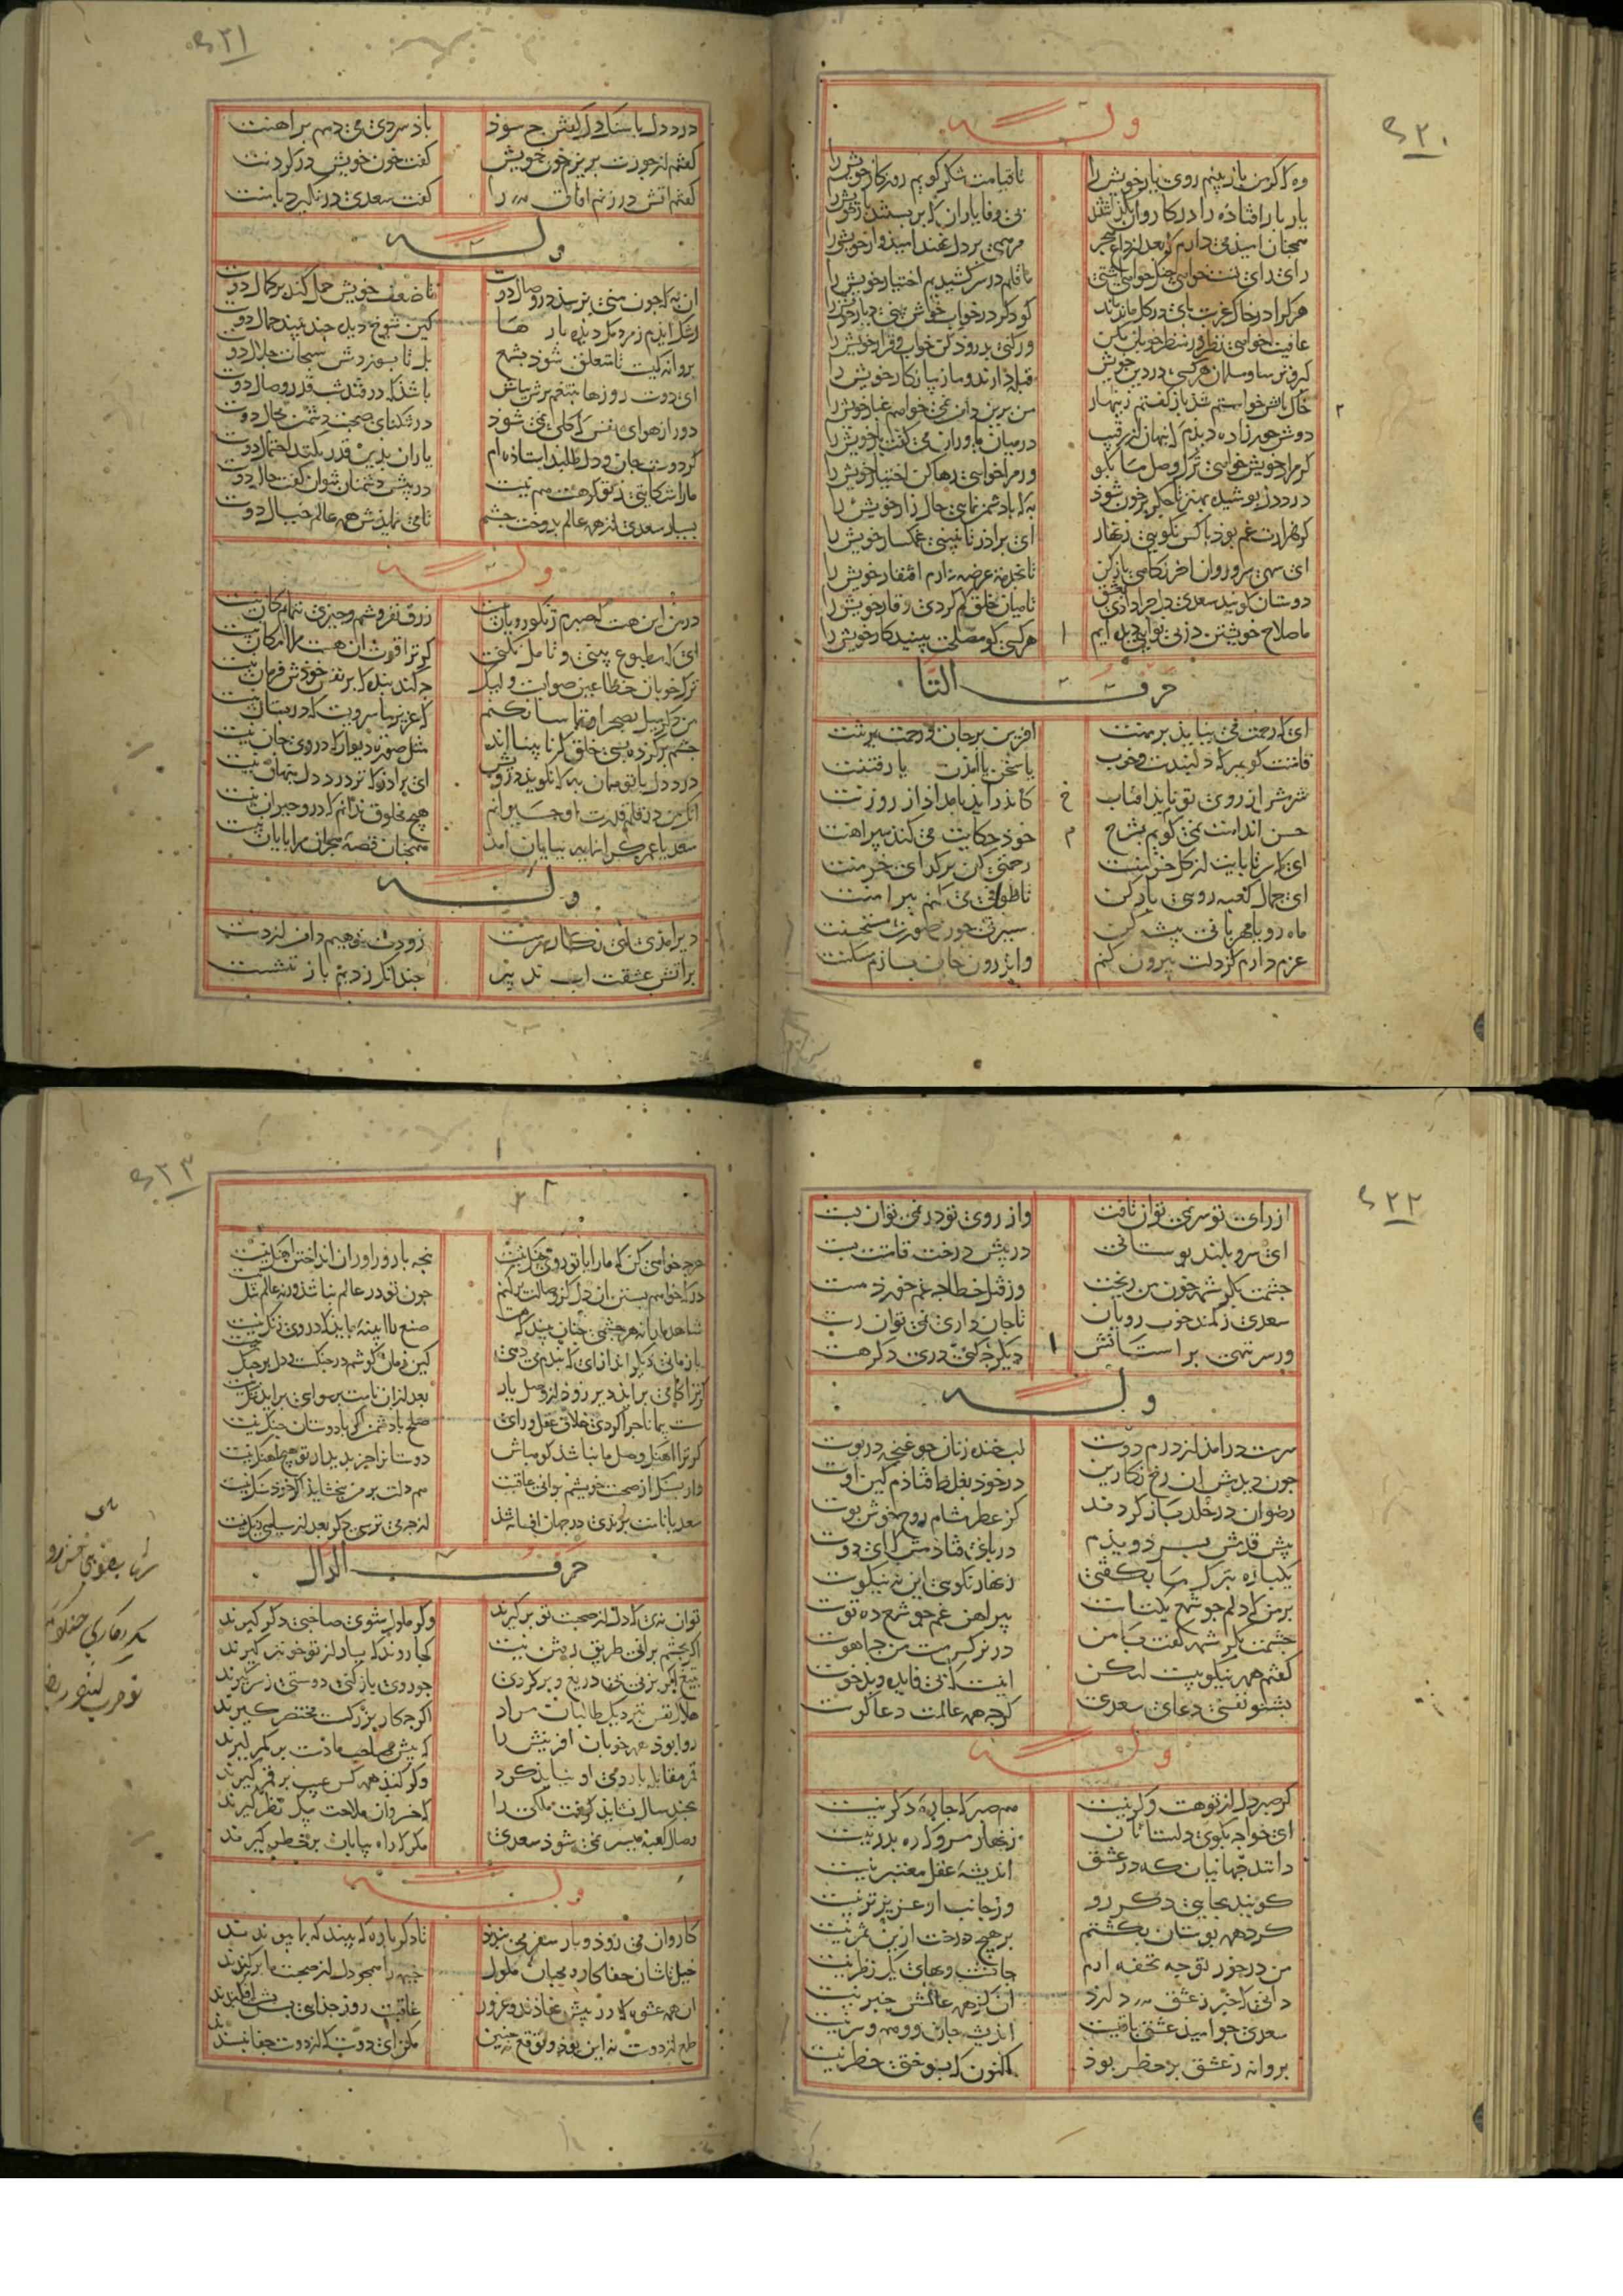 ۲۰
وله
وه که گر من باز بینم روی یار خویش را تا قیامت شکر گویم روزگار خویش را
یار بار افتاده را در کاروان بگذاشتند بی وفا یاران که بربستند بار خویش را
همچنان امیذ می دارم که بعد از داغ هجر مرهمی بر دل نهند امیذوار خویش را
رای رای تست خواهی جنک خواهی آشتی ما قلم در سر کشیدیم اختیار خویش را
هر که را در خاک غربت بای در کل ماند ماند کو دکر در خواب خوش بینی دیار خویش را
عافیت خواهی نظر در منظر خوبان مکن ور کنی بدرود کن خواب و قرار خویش را
کبر و ترسا و مسلمان هر کسی در دین خویش قبله دارند و ما زیبا نکار خویش را
خاک بایش خواستم شذ باز کفتم زینهار من برین دامن نمی خواهم غبار خویش را
۲
دوش حورا زاده دیدم که بنهان از رقیب در میان یاوران می کفت یار خویش را
کر مراد خویش خواهی ترک وصل ما بکو ور مرا خواهی رها کن اختیار خویش را
درد دل بوشیده بهتر تا جکر برخون شوذ به که با دشمن نمایی حال زار خویش را
کر هزارت غم بوذ با کس نکویی زینهار ای برادر تا نبینی غمکسار خویش را
ای سهی سرو روان اخر نکاهی باز کن تا بخدمت عرضه دارم افتقار خویش را
دوستان کویند سعدی دل جرا دادی بعشق تا میان خلق کم کردی وقار خویش را
ما صلاح خویشتن در بی نوایی دیده ایم ا هر کسی کو مصلحت بیند کار خویش را
حرف التا
ای که رحمت می نیاید بر منت افرین بر جان و رحمت بر تنت
قامتت کویم که دلبندست و خوب یا سخن یا آمدن یا رفتنت
شرمش از روی تو بایذ افتاب خ کاندر آید بامداد از روزنت
حسن اندامت نمی کویم بشرح م خود حکایت می کند بیراهنت
ای که سر تا بایت از کل خرمنست رحمتی کن بر کدای خرمنت
ای جمال کعبه رویی باز کن تا طوافی می کنم بیرامنت
ماه رویا مهربانی بیشه کن سیرتی چون صورت مستحسنت
عزم دارم کز دلت بیرون کنم واندرون جان بسازم مسکنت
۲۱
درد دل با سنک دل کفتن چه سوذ باذ سردی می دمم بر اهنت
کفتم از جورت بریزم خون خویش کفت خون خویش در کردنت
کفتم اتش در زنم افاق را کفت سعدی در نکیرد با منت
وله
ان به که چون منی نرسد در وصال دوست تا ضعف خویش حمل کند بر کمال دوست
رشک ایدم ز مردمک دیده بارها کین شوخ دیده چند ببیند جمال دوست
بروانه کیست تا متعلق شوذ بشمع بل تا بسوزدش سبحات جلال دوست
ای دوست روزها بتنعم برش مباش باشذ که در فتد شب قدر وصال دوست
دور از هوای نفس که کلی نمی شوذ در تنکنای صحبت دشمن مجال دوست
کر دوست جان و دل طلبد ایستاذه ام یاران بدین قدر بکنند احتمال دوست
ما را شکایتی ز تو کر هست هم بتست در بیش دشمنان نتوان کفت حال دوست
بسیار سعدی از همه عالم بدوخت چشم تا می نمایذش همه عالم خیال دوست
وله
در من این هست که صبرم ز نکورویان نیست زرق نفروشم و چیزی ننمایم کان نیست
ای که مطبوع ببینی و تامل نکنی کر ترا قوت ان هست مرا امکان نیست
ترک خوبان خطا عین صوابست ولیک چه کند بنده که بر نفس خوذش فرمان نیست
من دکر میل بصحرا و تماشا نکنم که عزیز ما سرویست که در بستان نیست
چشم بر کرده بسی خلق که نا بینا اند مثل صورت دیوار که در وی جان نیست
درد دل با تو همان به که نکوید درویش ای برادر که ترا درد دل بنهان نیست
انک من در قلم قدرت او حیرانم هیچ مخلوق ندانم که درو حیران نیست
سعدیا عمر کرانمایه ببایان آمد همچنان قصه هجران مرا بایان نیست
وله
دیر آمدی ای نکار سرمست زودت ندهیم دامن از دست
بر آتش عشقت آب تدبیر چندانک زدیم باز ننشست
۲۲
از رای تو سر نمی توان تافت واز روی تو در نمی توان بست
ای سرو بلند بوستانی در بیش درخت قامتت بست
چشمت بکرشمه خون من ریخت وز قتل خطا چه غم خورد مست
سعدی ز کمند خوب رویان تا جان داری نمی توان رست
ور سر ننهی بر استانش ا دیکر چه کنی دری دکر هست
وله
سرمست درامذ از درم دوست لب خنده زنان چو غنچه در بوست
چون دیدمش ان رخ نکارین در خود بغلط فتاذم کین اوست
رضوان در خلد باز کردند کز عطر مشام روح خوش بوست
بیش قدمش بسر دویذم در بای فتاذمش که ای دوست
یکباره بترک ما بکفتی زنهار نکویی این نه نیکوست
بر من که دلم چو شمع یکتاست بیراهن غم چو شمع ده توست
چشمت بکرشمه کفت با من در نرکس مست من چه آهوست
کفتم همه نیکویست لیکن اینست که بی فایده و بذخوست
بشنو نفسی دعای سعدی کرچه همه عالمت دعاکوست
وله
کر صبر دل از تو هست و کر نیست هم صبر که چاره دکر نیست
ای خواجه بکوی دلستانان زنهار مرو که ره بدر نیست
دانند جهانیان که در عشق اندیشه عقل معتبر نیست
کویند بجانبی دکر رو وز جانب او عزیزتر نیست
کرد همه بوستان بکشتیم بر هیچ درخت ازین ثمر نیست
من در خور تو چه تحفه ارم جانست و بهای یک نظر نیست
دانی که خبر ز عشق دارد ان کز همه عالمش خبر نیست
سعدی چو امیذ عشق باقیست اندیشه جان و بیم سر نیست
بروانه ز عشق بر خطر بوذ اکنون که بسوختش خطر نیست
۲۳
هرچه خواهی کن که ما را با تو روی جنک نیست بنجه با زورآوران انداختن فرهنک نیست
در که خواهم بستن آن دل کز وصالت بر کنم چون تو در عالم نباشذ ورنه عالم تنک نیست
شاهد ما را نه هر چشمی چنان بیند که هست صنع را آیینه باید که بر وی زنک نیست
با زمانی دیکر انداز ای که بندم می دهی کین زمان کوشم بر چنکست و دل بر چنک نیست
کر ترا کامی براید دیر زود از وصل یار بعد ازان نامت برسوایی براید ننک نیست
سست بیمانا چرا کردی خلاف عقل و رای صلح با دشمن اکر با دوستان جنک نیست
کر ترا آهنک وصل ما نباشذ کو مباش دوستان را جز بدیدار تو هیچ آهنک نیست
ور بسنک از صحبت خویشم برانی عاقبت هم دلت بر من ببخشاید که آخر سنک نیست
سعدیا نامت برندی در جهان افسانه شذ از چه می ترسی دکر بعد از سیاهی رنک نیست
حرف الدال
توان نه ای که دل از صحبت تو بر کیرند وکر ملول شوی صاحبی دکر کیرند
اکر بخشم برانی طریق رفتن نیست کجا روند که یار از تو خوبتر کیرند
بتیغ اکر بزنی بی دریغ و بر کردی چو روی باز کنی دوستی ز سر کیرند
هلاک نفس بنزدیک طالبان مراد اکرچه کار بزرکست مختصر کیرند
روا بوذ همه خوبان آفرینش را که بیش صاحب ما دست بر کمر کیرند
قمر مقابله با روی او نیارد کرد وکر کند همه کس عیب بر قمر کیرند
بچند سال نشاید کرفت ملکی را که خسروان ملاحت بیک نظر کیرند
وصال کعبه میسر نمی شوذ سعدی مکر که راه بیابان بر خطر کیرند
وله
کاروان می روذ و بار سفر می بندند تا دکر باره که بیند که بما بیوندند
خیل تاشان جفاکار و محبان ملول خیمه را همچو دل از صحبت ما برکندند
ان همه عشوه که در بیش نهاذند و غرور عاقبت روز جذایی بس بشت افکندند
طمع از دوست نه این بود و توقع نه چنین مکن ای دوست که از دوست جفا نبسندند